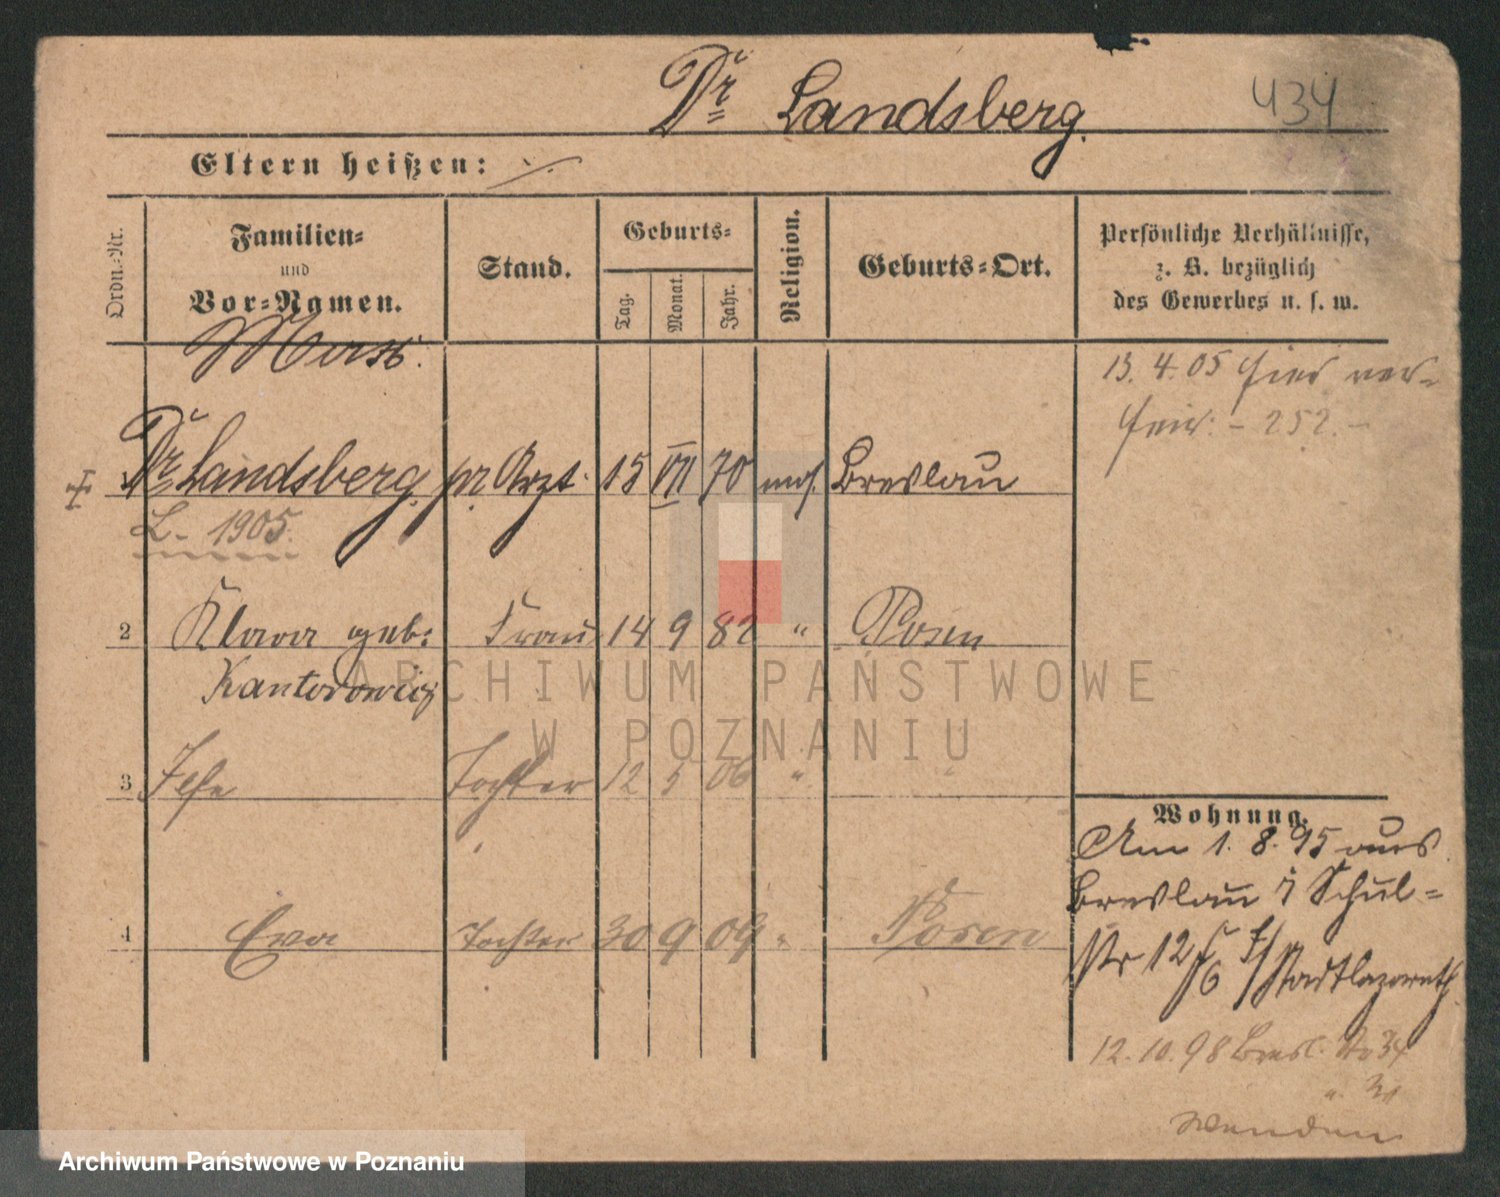 Dr Landsberg.
434
Eltern heißen: ./.
Ordn.-Nr.
Familien-
und
Vor-Namen.
Stand.
Geburts-
Tag.
Monat.
Jahr.
Religion.
Geburts-Ort.
Persönliche Verhältnisse,
z. B. bezüglich
des Gewerbes u. s. w.
13. 4. 05 hier ver-
heir. - 252. -
1 Dr Landsberg pr Arzt 15 VII 70 mos. Breslau
L. 1905.
2 Klara geb: Frau 14 9 82 " Posen
Kantorowicz
3 Ilse Tochter 12 5 06 " "
4 Eva Tochter 30 9 09 " Posen
Wohnung.
Am 1. 8. 95 aus
Breslau i Schul-
str 12 Stadtlazareth.
12. 10. 98 Bresl. 34
" 31
Wenden
ARCHIWUM PAŃSTWOWE
W POZNANIU
Archiwum Państwowe w Poznaniu